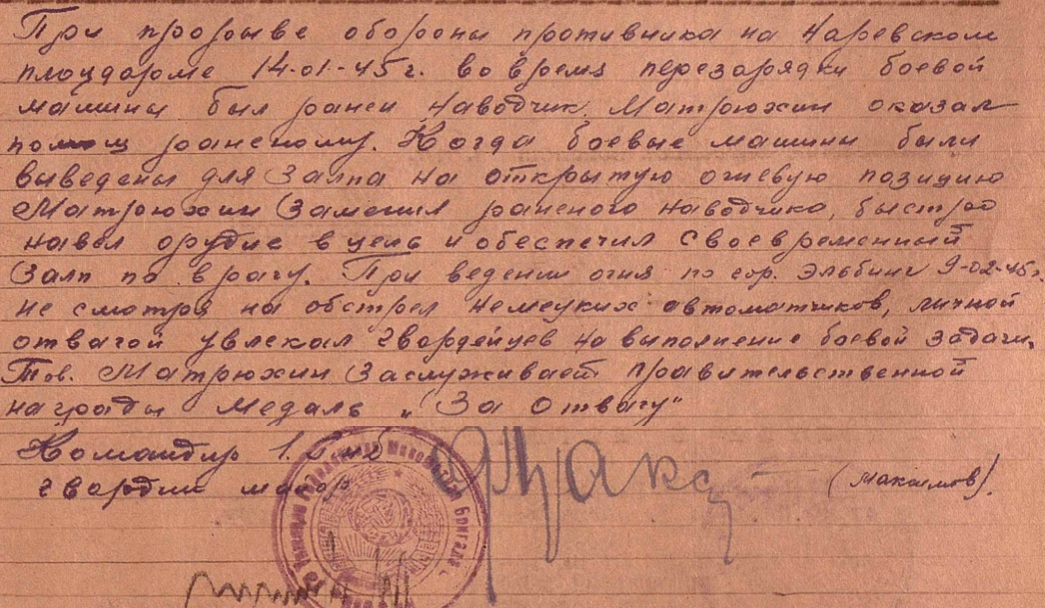 При прорыве обороны противника на Наревском
плацдарме 14-01-45г. во время перезарядки боевой
машины был ранен наводчик. Матрюхин оказал
помощ раненому. Когда боевые машины были
выведены для залпа на открытую огневую позицию
Матрюхин заменил раненого наводчика, быстро
навел орудие в цель и обеспечил своевременный
залп по врагу. При ведении огня по гор. Эльбинг 9-02-45г.
не смотря на обстрел немецких автоматчиков, личной
отвагой увлекал гвардейцев на выполнение боевой задачи.
Тов. Матрюхин заслуживает правительственной
награды медаль „За отвагу"
Командир 1.
гвардии майор
(Максимов).